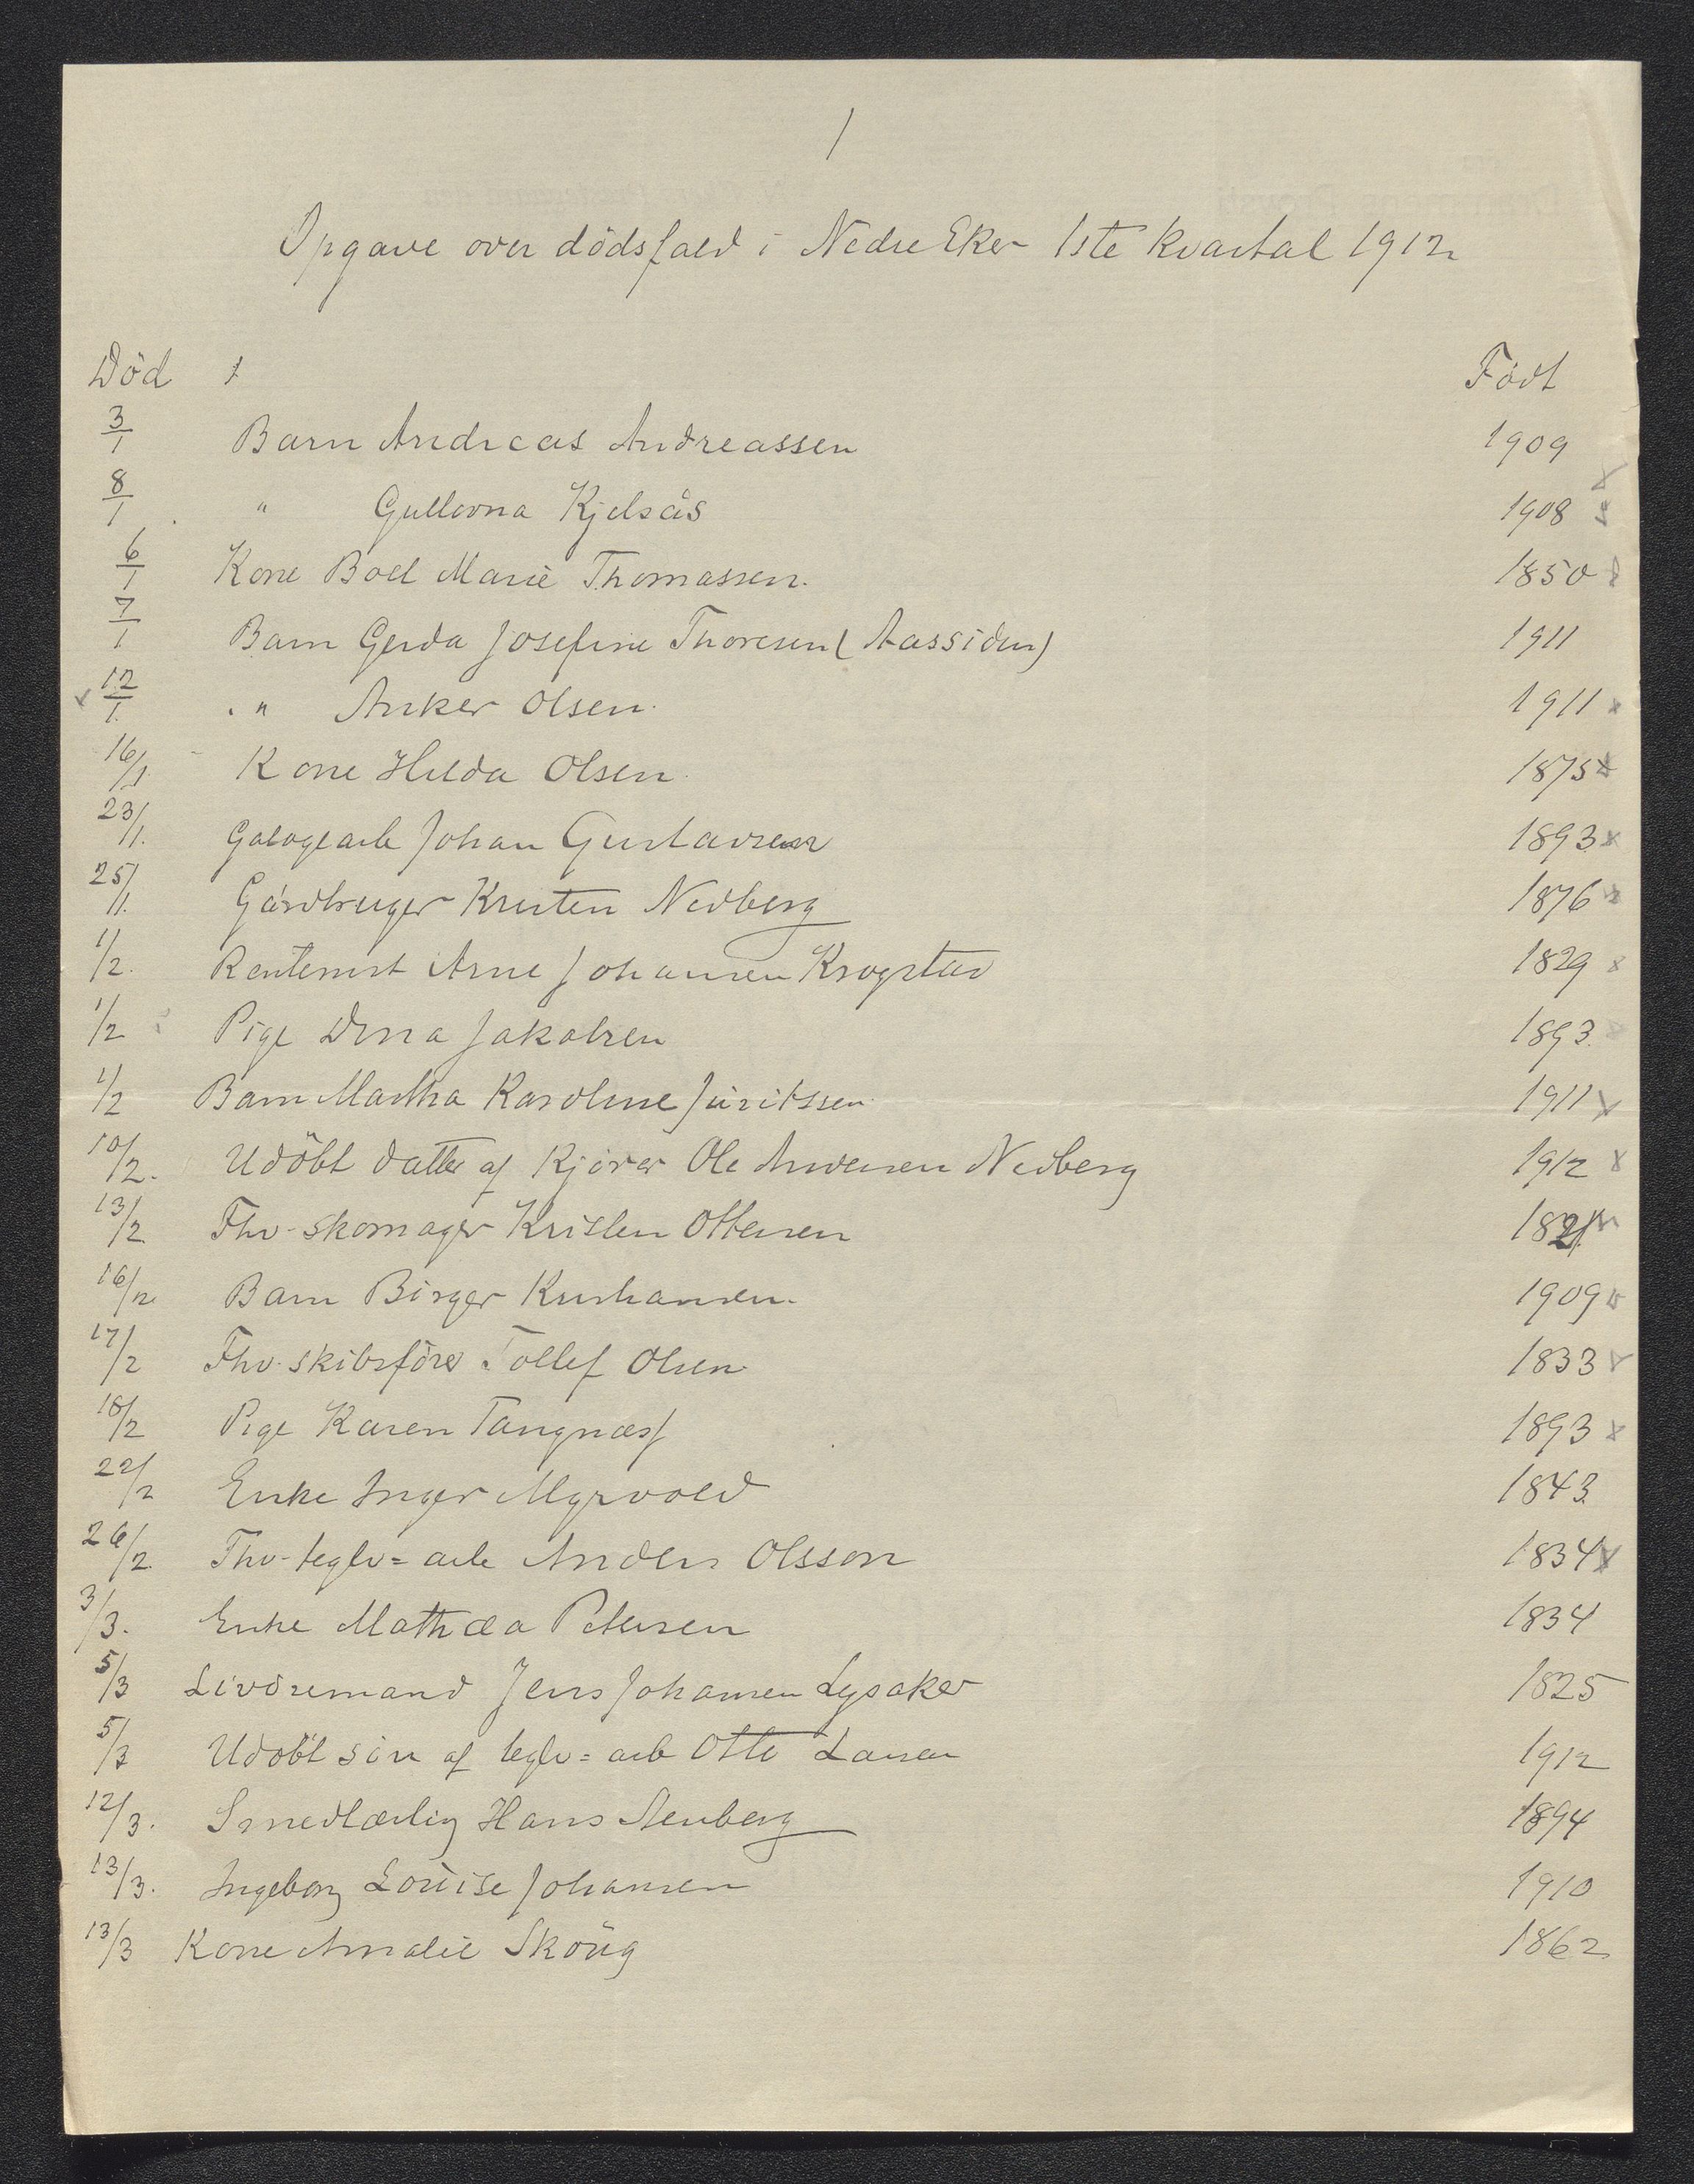 1
Opgave over dödsfald i Nedre Eker 1ste kvartal 1912
Död Födt
3/1 Barn Andreas Andreassen 1909
8/1 " Gullovna Kjelsås 1908
6/1 Kone Boel Marie Thomassen. 1850
7/1 Barn Gerda Josefine Thoresen (Aassiden) 1911
12/1. " Anker Olsen. 1911
16/1 Kone Hilda Olsen. 1875
23/1. Galogearb Johan Gustavsen 1893
25/1. Gårdbruger Kristen Nedberg 1876
1/2. Rentenist Arne Johansen Krogstad 1829
1/2 Pige Dina Jakobsen 1893.
1/2 Barn Martha Karoline Juritssen 1911
10/2. Udöbt datter af Kjörer Ole Andersen Nedberg 1912
13/2 Fhv. skomager Kristen Ottersen 1821.
16/2. Barn Birger Kristiansen. 1909
17/2 Fhv. skibsförer Tollef Olsen 1833
18/2 Pige Karen Tangnæss 1893
22/2 Enke Inger Myrvold 1843.
26/2. Fhv. teglv= arb Anders Olsson 1834
3/3. Enke Mathilda Petersen 1834
5/3 Livöremand Jens Johansen Lysaker 1825
5/3 Udöbt sön af teglv= arb Otto Larsen 1912
12/3. Smedlærling Hans Stenberg 1894
13/3. Ingeborg Louise Johansen 1910
13/3 Kone Amalie Skoug 1862